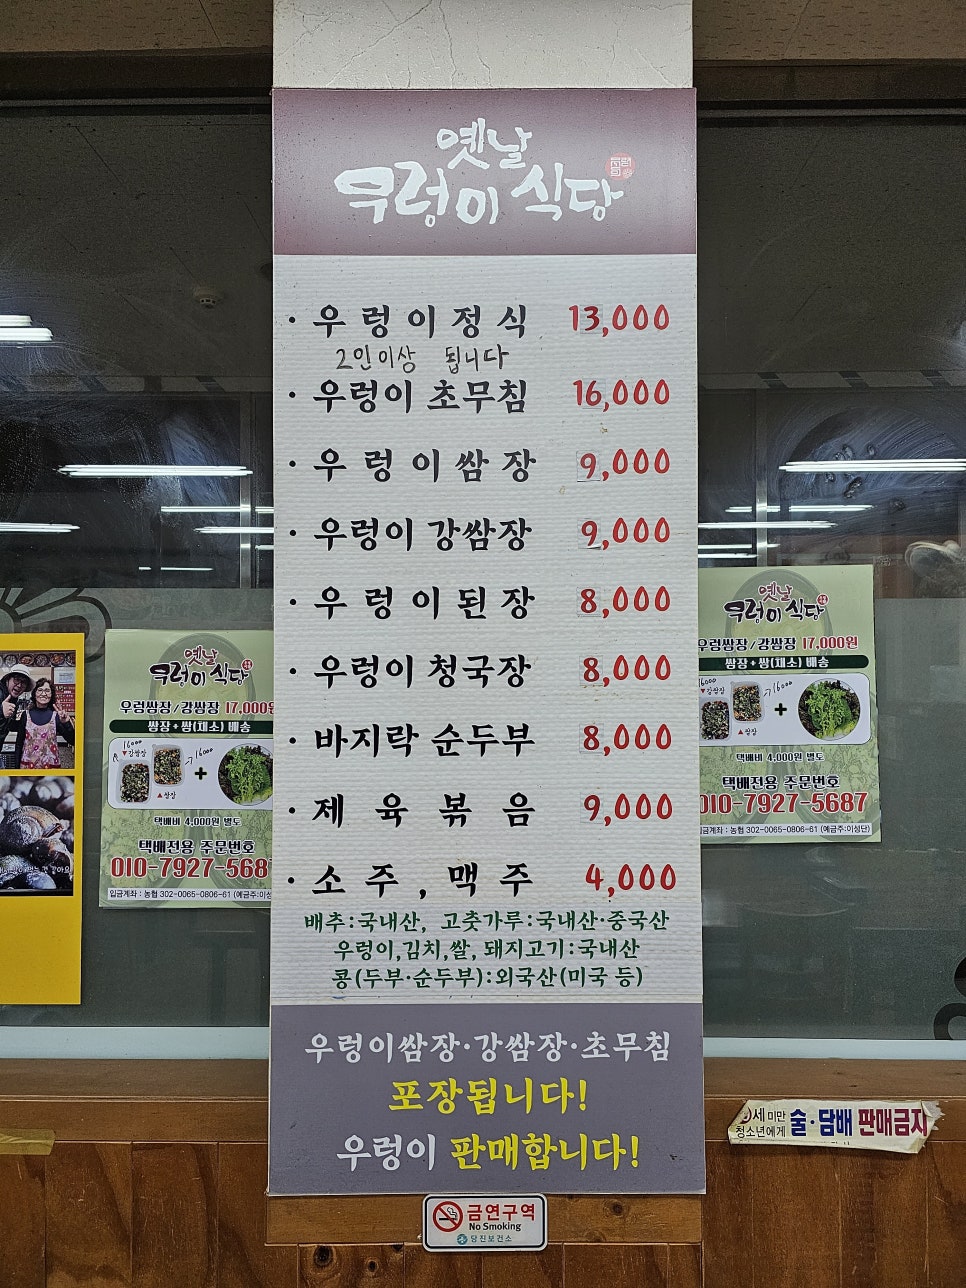 옛날
우렁이 식당
· 우렁이정식 13,000
2인이상 됩니다
· 우렁이 초무침 16,000
· 우렁이쌈장 9,000
· 우렁이 강쌈장 9,000
· 우렁이된장 8,000
· 우렁이 청국장 8,000
· 바지락 순두부 8,000
· 제육볶음 9,000
· 소주, 맥주 4,000
배추:국내산, 고춧가루:국내산·중국산
우렁이,김치,쌀, 돼지고기:국내산
콩(두부·순두부):외국산(미국 등)
우렁이쌈장·강쌈장·초무침
포장됩니다!
우렁이 판매합니다!
금연구역
No Smoking
당진보건소
옛날
우렁이 식당
우렁쌈장/강쌈장 17,000원
쌈장+쌈(채소) 배송
16000
▼강쌈장
16000
+
▲쌈장
택배비 4,000원 별도
택배전용 주문번호
010-7927-568
입금계좌 : 농협 302-0065-0806-61 (예금주:이성
옛날
우렁이 식당
우렁쌈장/강쌈장 17,000원
쌈장+쌈(채소) 배송
16000
▼강쌈장
16000
+
▲쌈장
택배비 4,000원 별도
택배전용 주문번호
010-7927-5687
금계좌 : 농협 302-0065-0806-61 (예금주:이성단)
세 미만
청소년에게 술·담배 판매금지